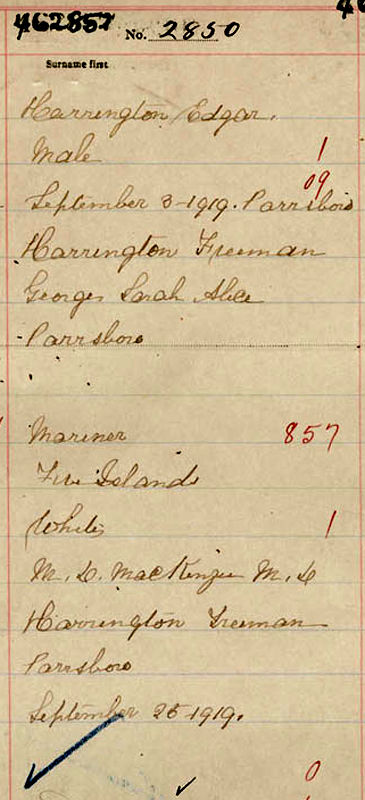 462857
No. 2850
Surname first
Harrington Edgar.
Male 1
09
September 3-1919. Parrsboro
Harrington Freeman
George Sarah Alice
Parrsboro
Mariner 857
Five Islands
White 1
M. D. MacKenzie M. D
Harrington Freeman
Parrsboro
September 25-1919.
0